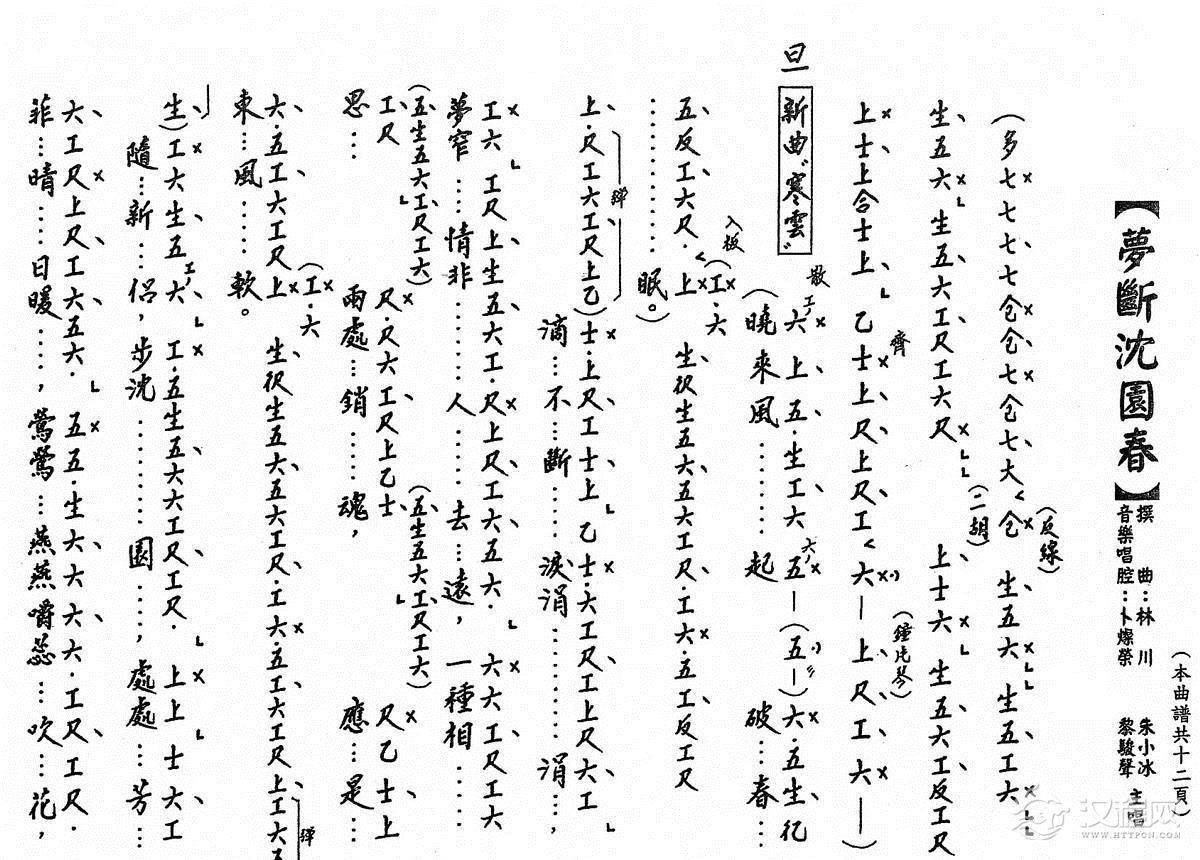 (本曲譜共十二頁)
【夢斷沈園春】
撰 曲：林 川 朱小冰
音樂唱腔：卜燦榮 黎駿聲 主唱
(反線)
(多七七七仓仓七仓七大仓 生五六 生五工六
(二胡)
生五六 生五六工尺工六尺 上士六 生五六工反工尺
齊 (鐘片琴)
上士上合士上 乙士上尺上尺工 六—上尺工六—)
旦 新曲"寒雲" 散
工六上五·生工六 六五—(五—)六·五生仜
(曉來風……起 破…春…
入板
五反工六尺·上 (工·六 生伬生五六五六工尺·工六·五工反工尺
………眠。)
彈
上·尺工六工尺上乙)士·上尺工士上 乙士·六工尺工上尺六工
滴…不…斷……淚涓………涓…，
工六 工尺上生五六工·尺上尺工六五六· 六六工尺工六
夢窄…情非………人……去…遠，一種相……
(五生五六工尺工六) (五生五六工尺工六)
工尺 尺·尺六工尺上乙士 尺乙士上
思… 兩處…銷…魂， 應…是…
六·五工六工尺上 (工·六 生伬生五六五六工尺·工六·五工六工尺上工六五
東…風…軟。
彈
生)工六生五 工六 工·五生五六六工尺工尺· 上上 士六工
隨…新…侶，步沈………園…，處處…芳…
六工尺上尺工六五六· 五五·生六六六六·工尺工尺·
菲…晴……日暖……，鶯鶯…燕燕嚼蕊…吹…花，
汉程网
WWW.HTTPCN.COM